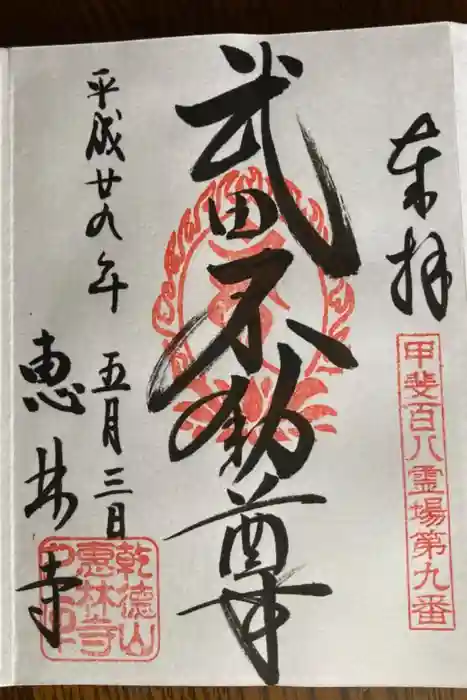 奉拝
甲斐百八霊場第九番
武田不動尊
平成廿九年
五月三日
恵林寺
乾徳山
恵林寺